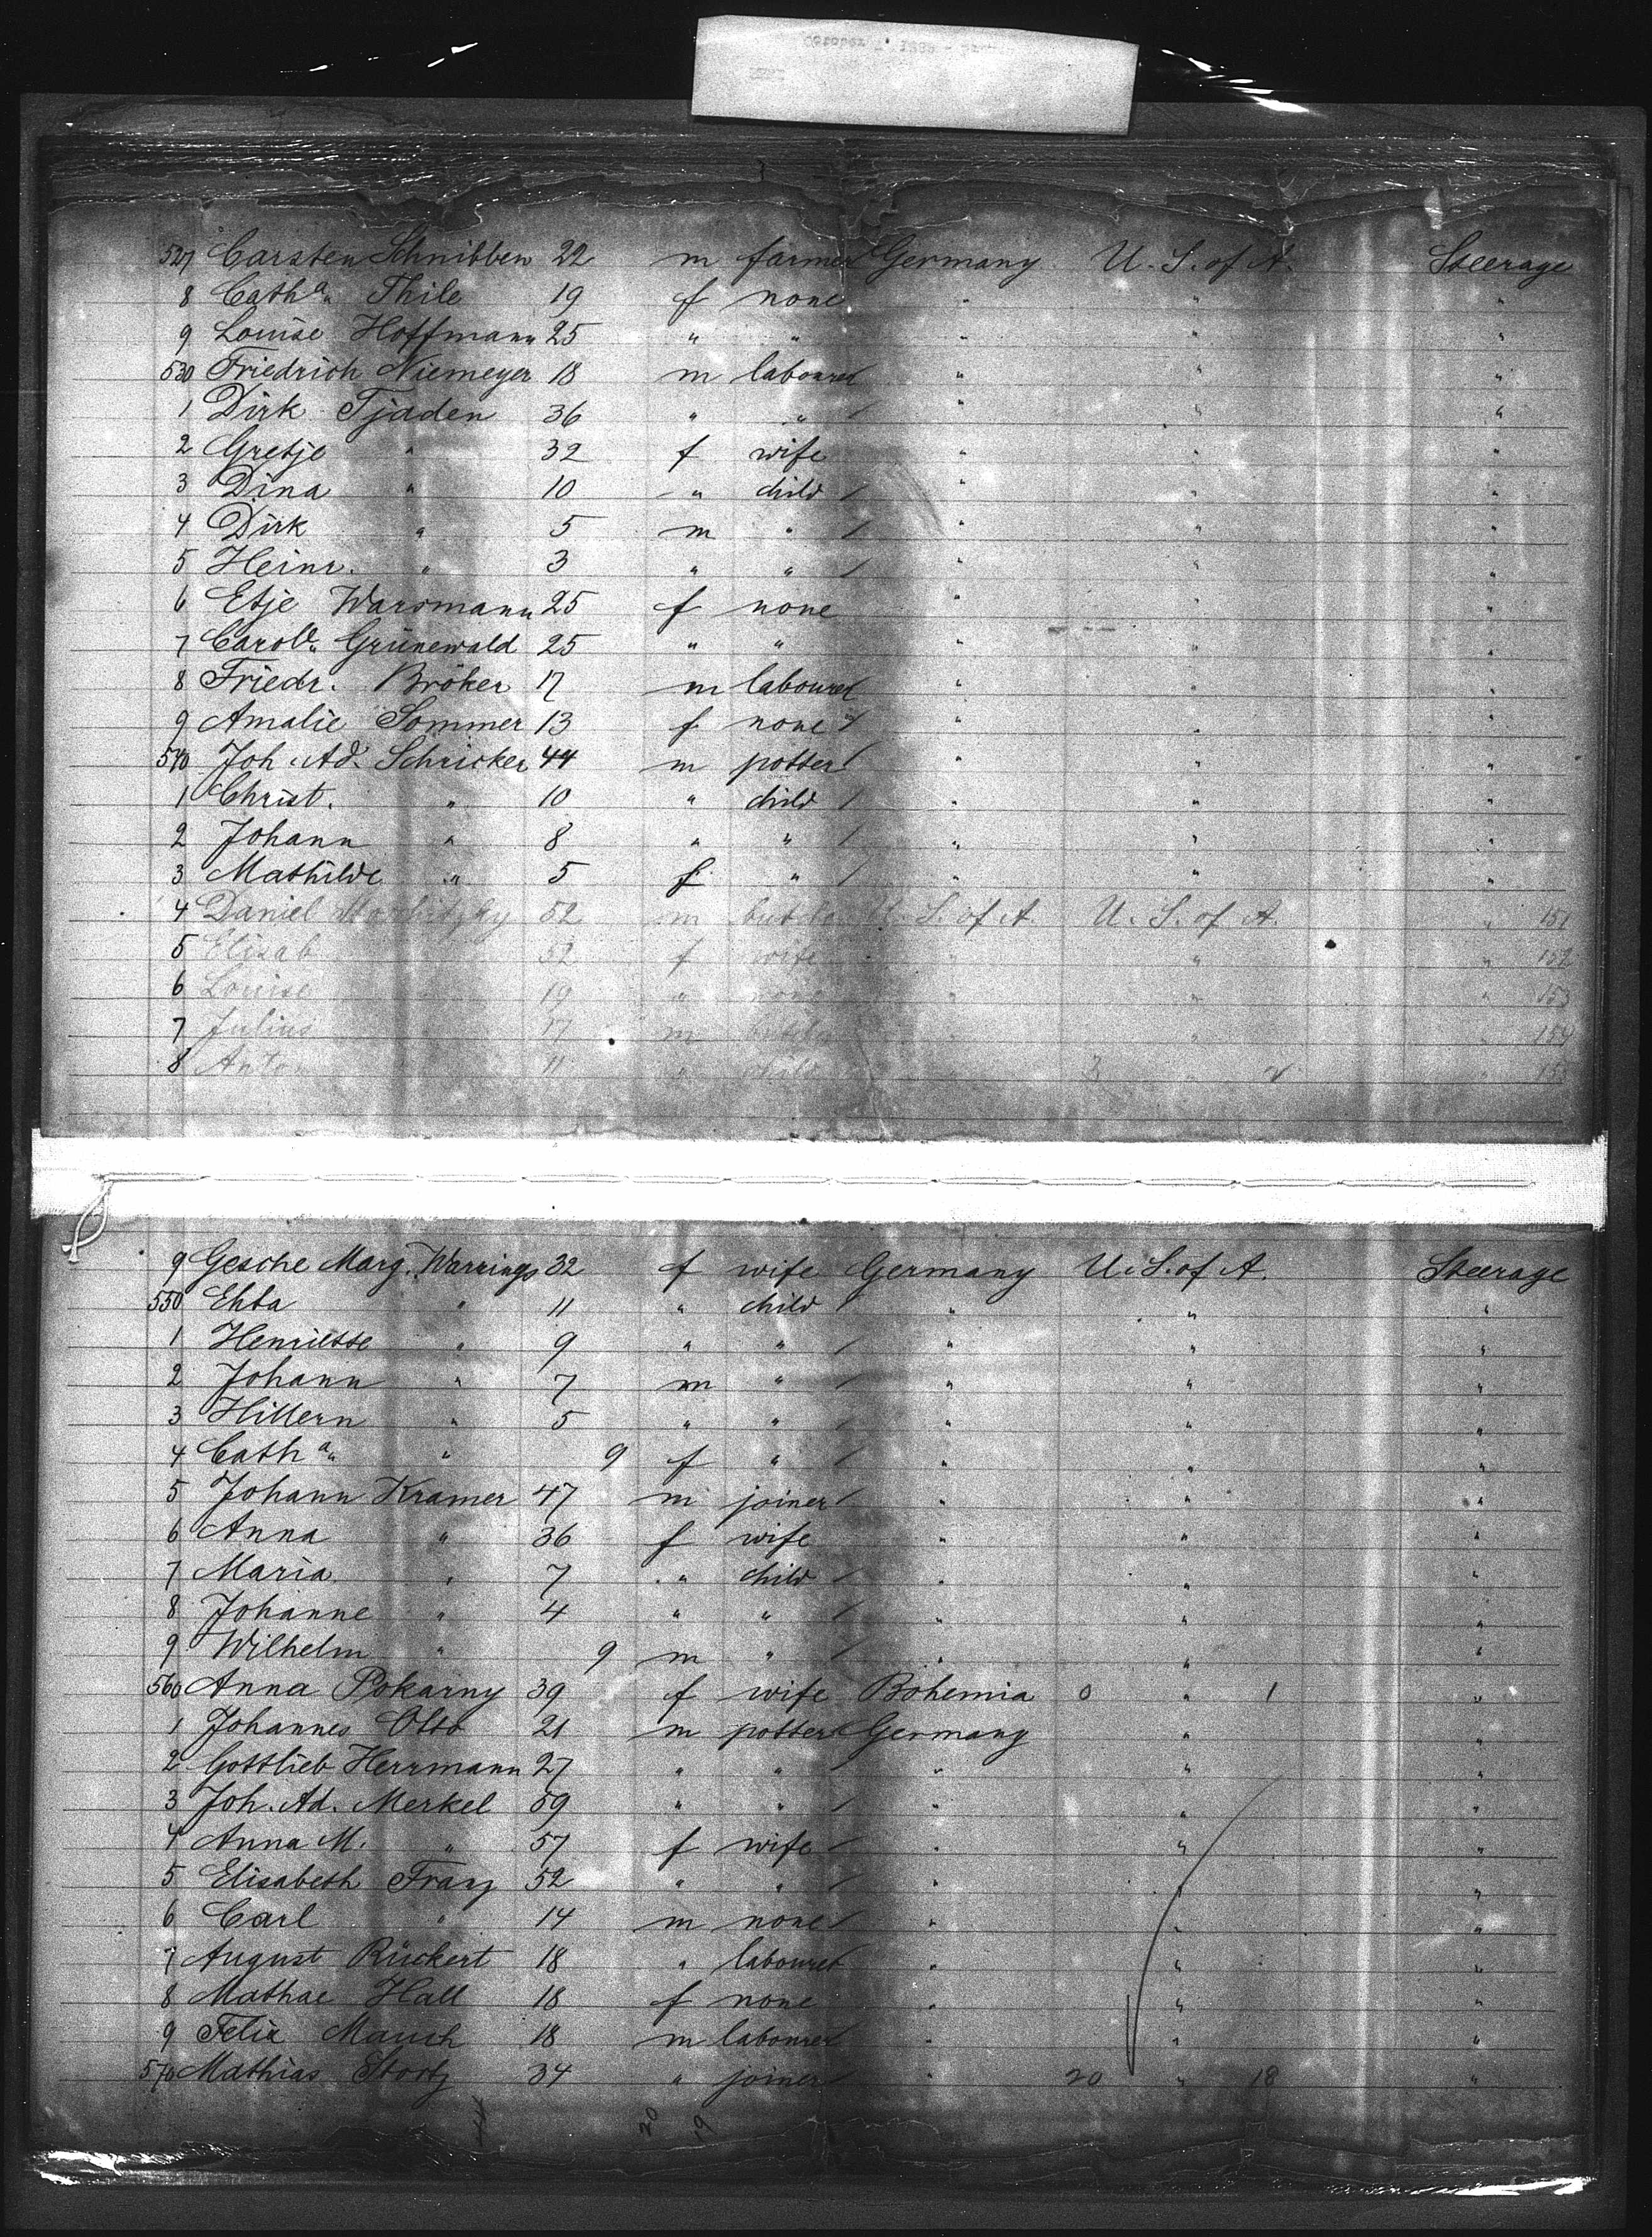 October 1, 1886
527 Carsten Schnibben 22 m farmer Germany U. S. of A. Steerage
8 Catha. Thile 19 f none " " "
9 Louise Hoffmann 25 " " " " "
530 Friedrich Niemeyer 18 m labourer " " "
1 Dirk Tjaden 36 " " " " "
2 Gretje " 32 f wife " " "
3 Dina " 10 " child " " "
4 Dirk " 5 m " " " "
5 Heinr. " 3 " " " " "
6 Etje Warsmann 25 f none " " "
7 Carole. Grünewald 25 " " " " "
8 Friedr. Bröker 17 m labourer " " "
9 Amalie Sommer 13 f none " " "
540 Joh. Ad. Schricker 44 m potter " " "
1 Christ. " 10 " child " " "
2 Johann " 8 " " " " "
3 Mathilde " 5 f " " " "
4 Daniel 52 m butcher U. S. of A. U. S. of A. " 151
5 Elisab 52 f wife " " " 152
6 Louise 19 " none " " " 153
7 Julius 17 m butcher " " " 154
8 Anton 11 " child " " 155
9 Gesche Marg. Warrings 32 f wife Germany U. S. of A. Steerage
550 Ehta " 11 " child " " "
1 Henriette " 9 " " " " "
2 Johann " 7 m " " " "
3 Hillern " 5 " " " " "
4 Catha. " 9 f " " " "
5 Johann Kramer 47 m joiner " " "
6 Anna " 36 f wife " " "
7 Maria " 7 " child " " "
8 Johanne " 4 " " " " "
9 Wilhelm " 9 m " " " "
560 Anna Pokarny 39 f wife Bohemia 0 " 1 "
1 Johannes Otto 21 m potter Germany " "
2 Gottlieb Herrmann 27 " " " " "
3 Joh. Ad. Merkel 59 " " " " "
4 Anna M. " 57 f wife " " "
5 Elisabeth Franz 52 " " " " "
6 Carl " 14 m none " " "
7 August Rückert 18 " labourer " " "
8 Mathae Hall 18 f none " " "
9 Felix Mauch 18 m labourer " " "
570 Mathias Stortz 34 " joiner " 20 " 18 "
20 19